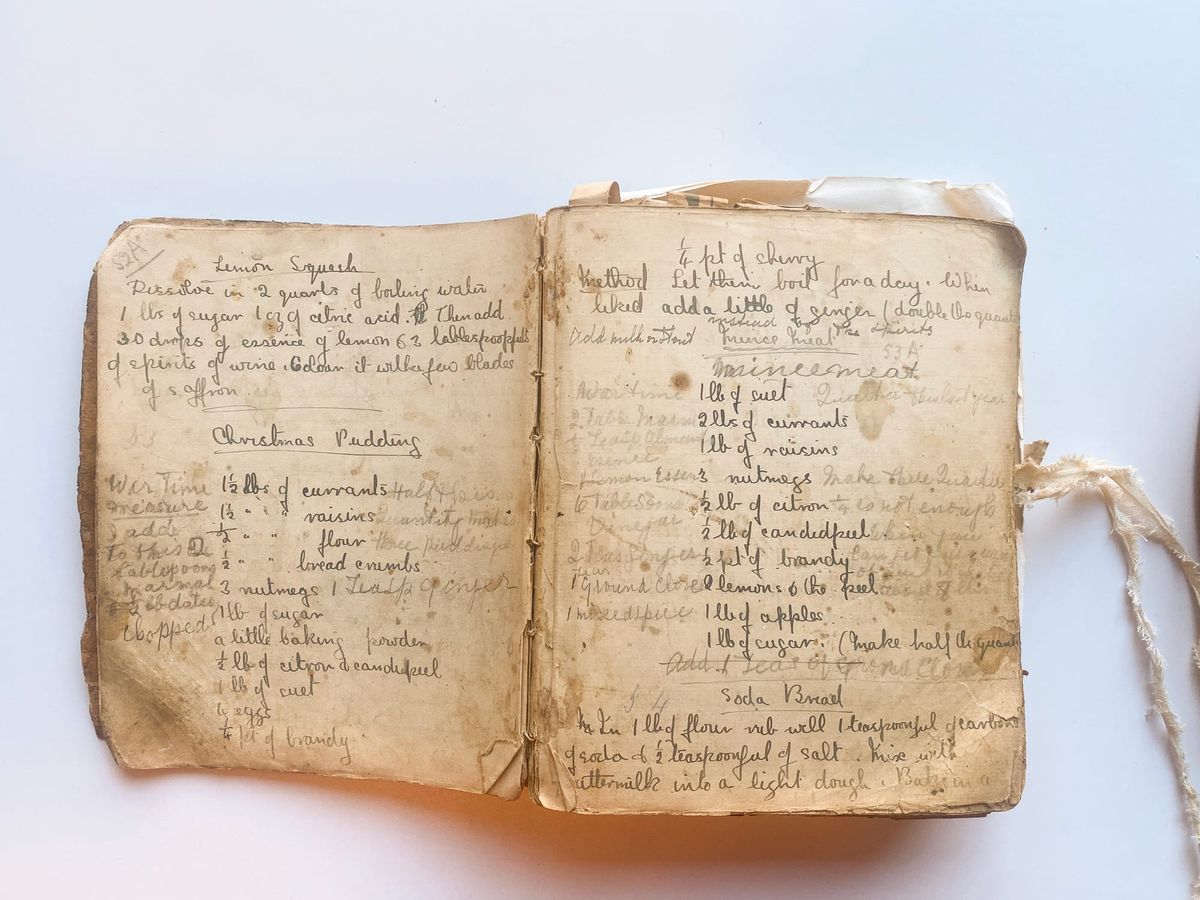 52A
Lemon Squash
Dissolve in 2 quarts of boiling water
1 lbs of sugar 1 oz of citric acid. Then add
30 drops of essence of lemon & 3 tablespoonfuls
of spirits of wine. Colour it with a few blades
of saffron.
53
Christmas Pudding
War Time
measure
I add
to this 2
tablespoons
marmal
dates
chopped
1½ lbs of currants Half this
1½ " " raisins quantity makes
½ " " flour three puddings
½ " " bread crumbs
3 nutmegs 1 Teasp Ginger
1 lb of sugar
a little baking powder
½ lb of citron & candidpeel
1 lb of suet
eggs
¼ pt of brandy
¼ pt of sherry
Method Let them boil for a day. When
liked add a little of ginger (double the quant
add milk instead of the spirits
Mince Meat
53A
Mincemeat
War time 1 lb of suet
2 Table 2 lbs of currants
Teasp Almon 1 lb of raisins
Essence
Lemon Essen 3 nutmegs Make three
6 Table ½ lb of citron is not enough
Vinegar ½ lb of candidpeel
2 Teas Ginger ½ pt of brandy
1 Ground Clove 2 lemons & the peel
1 mixed spice 1 lb of apples
1 lb of sugar. (Make half the quant
Add 1 Teas of Ground Clove
54
Soda Bread
In 1 lb of flour rub well 1 teaspoonful of carbon
of soda & ½ teaspoonful of salt. Mix with
uttermilk into a light dough. Bake in a